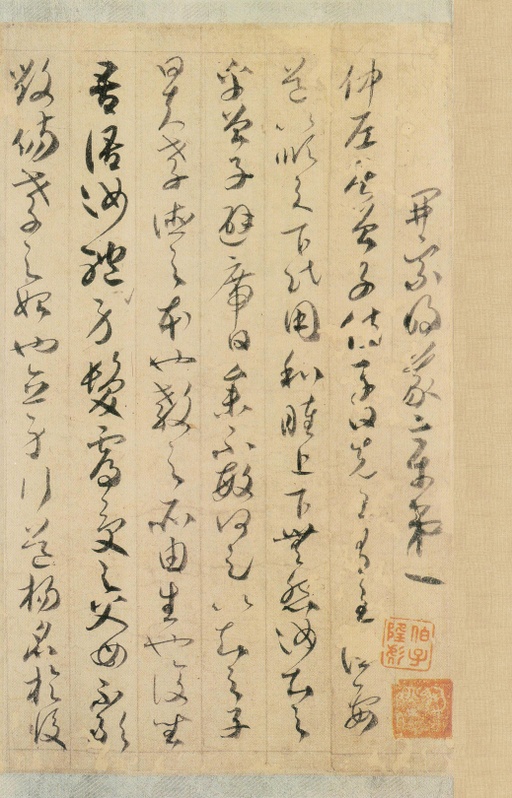 開宗明義章第一
仲尼居曾子侍子曰先王有至德要
道以順天下民用和睦上下無怨汝知之
乎曾子避席曰參不敏何足以知之子
曰夫孝德之本也教之所由生也復坐
吾語汝體身髮膚受之父母不敢
毀傷孝之始也立身行道揚名於後